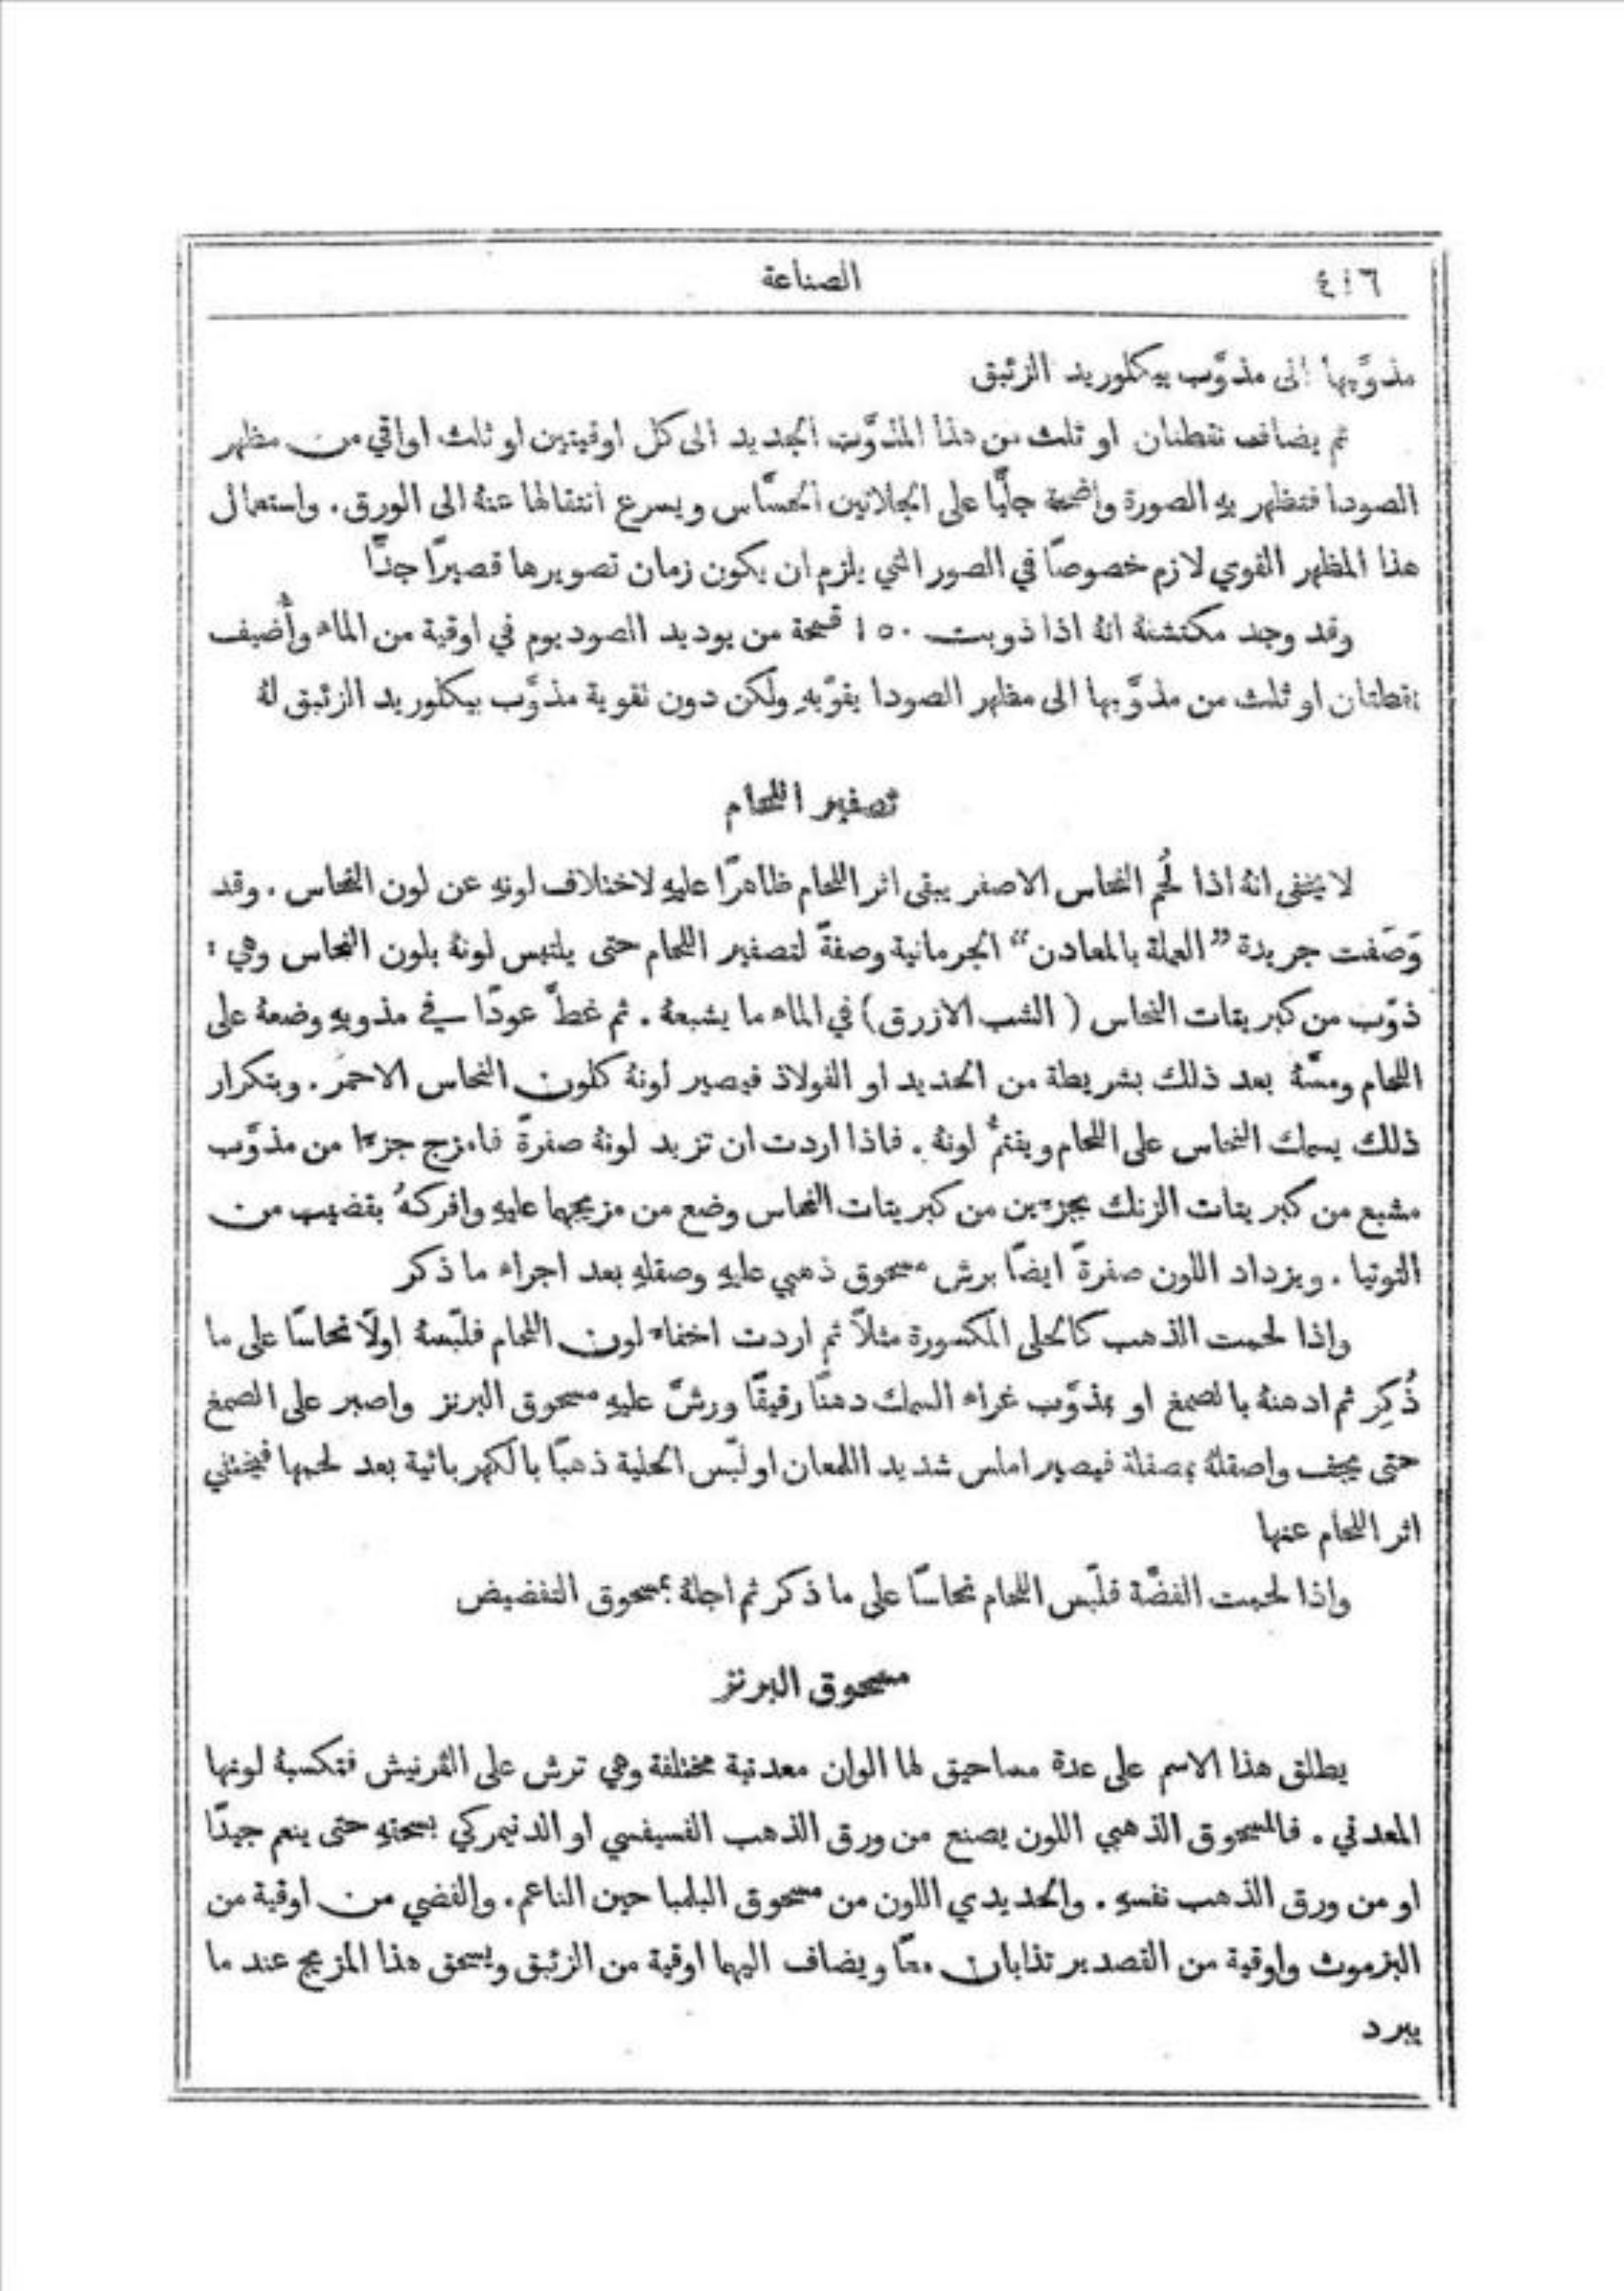 ٤١٦
الصناعة
مذوَّبها الى مذوَّب بيكلوريد الزئبق
ثم يضاف نقطتان او ثلث من هذا المذوَّب الجديد الى كل اوقيتين او ثلث اواقي من مظهر
الصودا فتظهر بهِ الصورة واضحة جليًّا على الجلاتين الحسَّاس ويسرع انتقالها عنهُ الى الورق. واستعمال
هذا المظهر القوي لازم خصوصًا في الصور التي يلزم ان يكون زمان تصويرها قصيرًا جدًّا
وقد وجد مكتشفهُ انهُ اذا ذوبت ١٥٠ قمحة من يوديد الصوديوم في اوقية من الماء وأُضيف
نقطتان او ثلث من مذوَّبها الى مظهر الصودا يقوّيهِ ولكن دون تقوية مذوَّب بيكلوريد الزئبق لهُ
تصفير اللحام
لا يخفى انهُ اذا لُحِم النحاس الاصفر يبقى اثر اللحام ظاهرًا عليهِ لاختلاف لونهِ عن لون النحاس. وقد
وَصَفت جريدة ”العملة بالمعادن“ الجرمانية وصفةً لتصفير اللحام حتى يلتبس لونهُ بلون النحاس وهي:
ذوّب من كبريتات النحاس (الشب الازرق) في الماء ما يشبعهُ. ثم غطّ عودًا في مذوبهِ وضعهُ على
اللحام ومسَّهُ بعد ذلك بشريطة من الحديد او الفولاذ فيصير لونهُ كلون النحاس الاحمر. وبتكرار
ذلك يسمك النحاس على اللحام ويقتمُّ لونهُ. فاذا اردت ان تزيد لونهُ صفرةً فامزج جزءًا من مذوَّب
مشبع من كبريتات الزنك بجزءين من كبريتات النحاس وضع من مزيجهما عليهِ وافركهُ بقضيب من
التوتيا. ويزداد اللون صفرةً ايضًا برش مسحوق ذهبي عليهِ وصقلهِ بعد اجراء ما ذكر
واذا لحمت الذهب كالحلى المكسورة مثلاً ثم اردت اخفاء لون اللحام فلبّسهُ اولاً نحاسًا على ما
ذُكِر ثم ادهنهُ بالصمغ او بمذوَّب غراء السمك دهنًا رقيقًا ورشَّ عليهِ مسحوق البرنز واصبر على الصمغ
حتى يجف واصقلهُ بمصقلة فيصير املس شديد اللمعان او لبّس الحلية ذهبًا بالكهربائية بعد لحمها فيختفي
اثر اللحام عنها
واذا لحمت الفضّة فلبّس اللحام نحاسًا على ما ذكر ثم اجلهُ بمسحوق التفضيض
مسحوق البرنز
يطلق هذا الاسم على عدة مساحيق لها الوان معدنية مختلفة وهي ترش على الفرنيش فتكسبهُ لونها
المعدني. فالمسحوق الذهبي اللون يصنع من ورق الذهب الفسيفسي او الدنيمركي بسحقهِ حتى ينعم جيدًا
او من ورق الذهب نفسهِ. والحديدي اللون من مسحوق البلمباجين الناعم. والفضي من اوقية من
البزموث واوقية من القصدير تذابان معًا ويضاف اليهما اوقية من الزئبق ويسحق هذا المزيج عند ما
يبرد